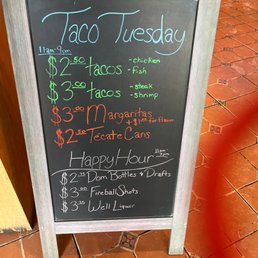 Taco Tuesday
11am-9pm
$2.50 tacos - chicken
- fish
$3.00 tacos - steak
- shrimp
$3.00 Margaritas
+$1.00 for flavor
$2.50 Tecate Cans
Happy Hour
$2.75 Dom Bottles & Drafts
$3.50 Fireball Shots
$3.75 Well Liquor